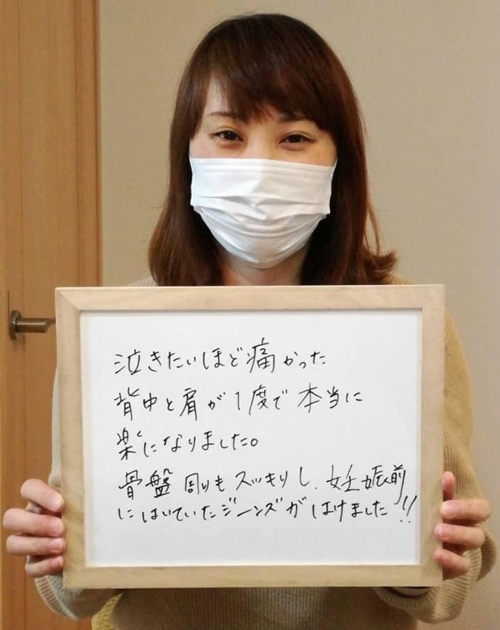 泣きたいほど痛かった
背中と肩が1度で本当に
楽になりました。
骨盤周りもスッキリし、妊娠前
にはいていたジーンズがはけました!!